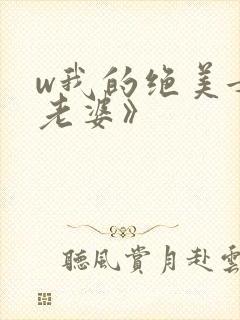 w我的绝美
老婆》
聽風賞月赴雲